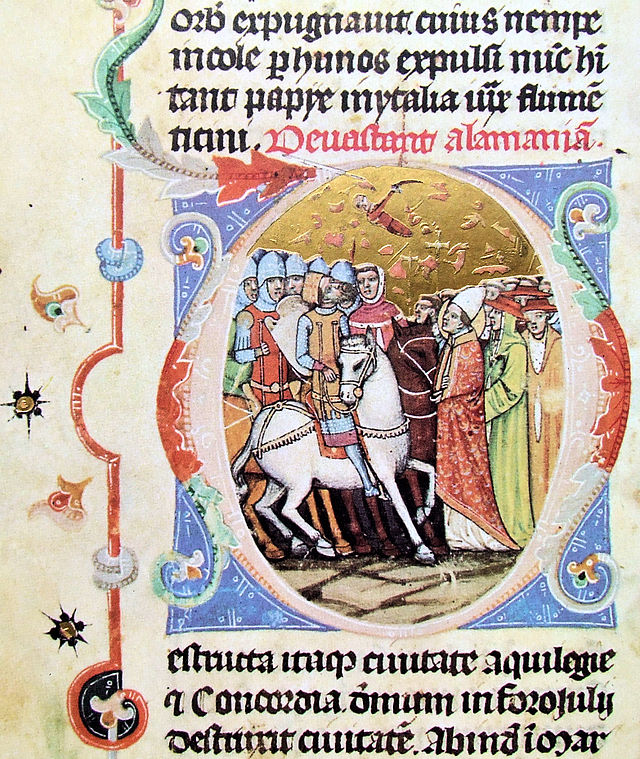 orb̄ expugnauit. cuius nempe
incole ꝑhunos expulsi nūc hī
tant papye inytalia iux̄ flumē
ticini. Deuastant alamaniā.
estructa itaqꝫ ciuitate aquilegie
⁊ Concordia. d̄inum in foroiulij
destruxit ciuitatē. Abinď ī mar